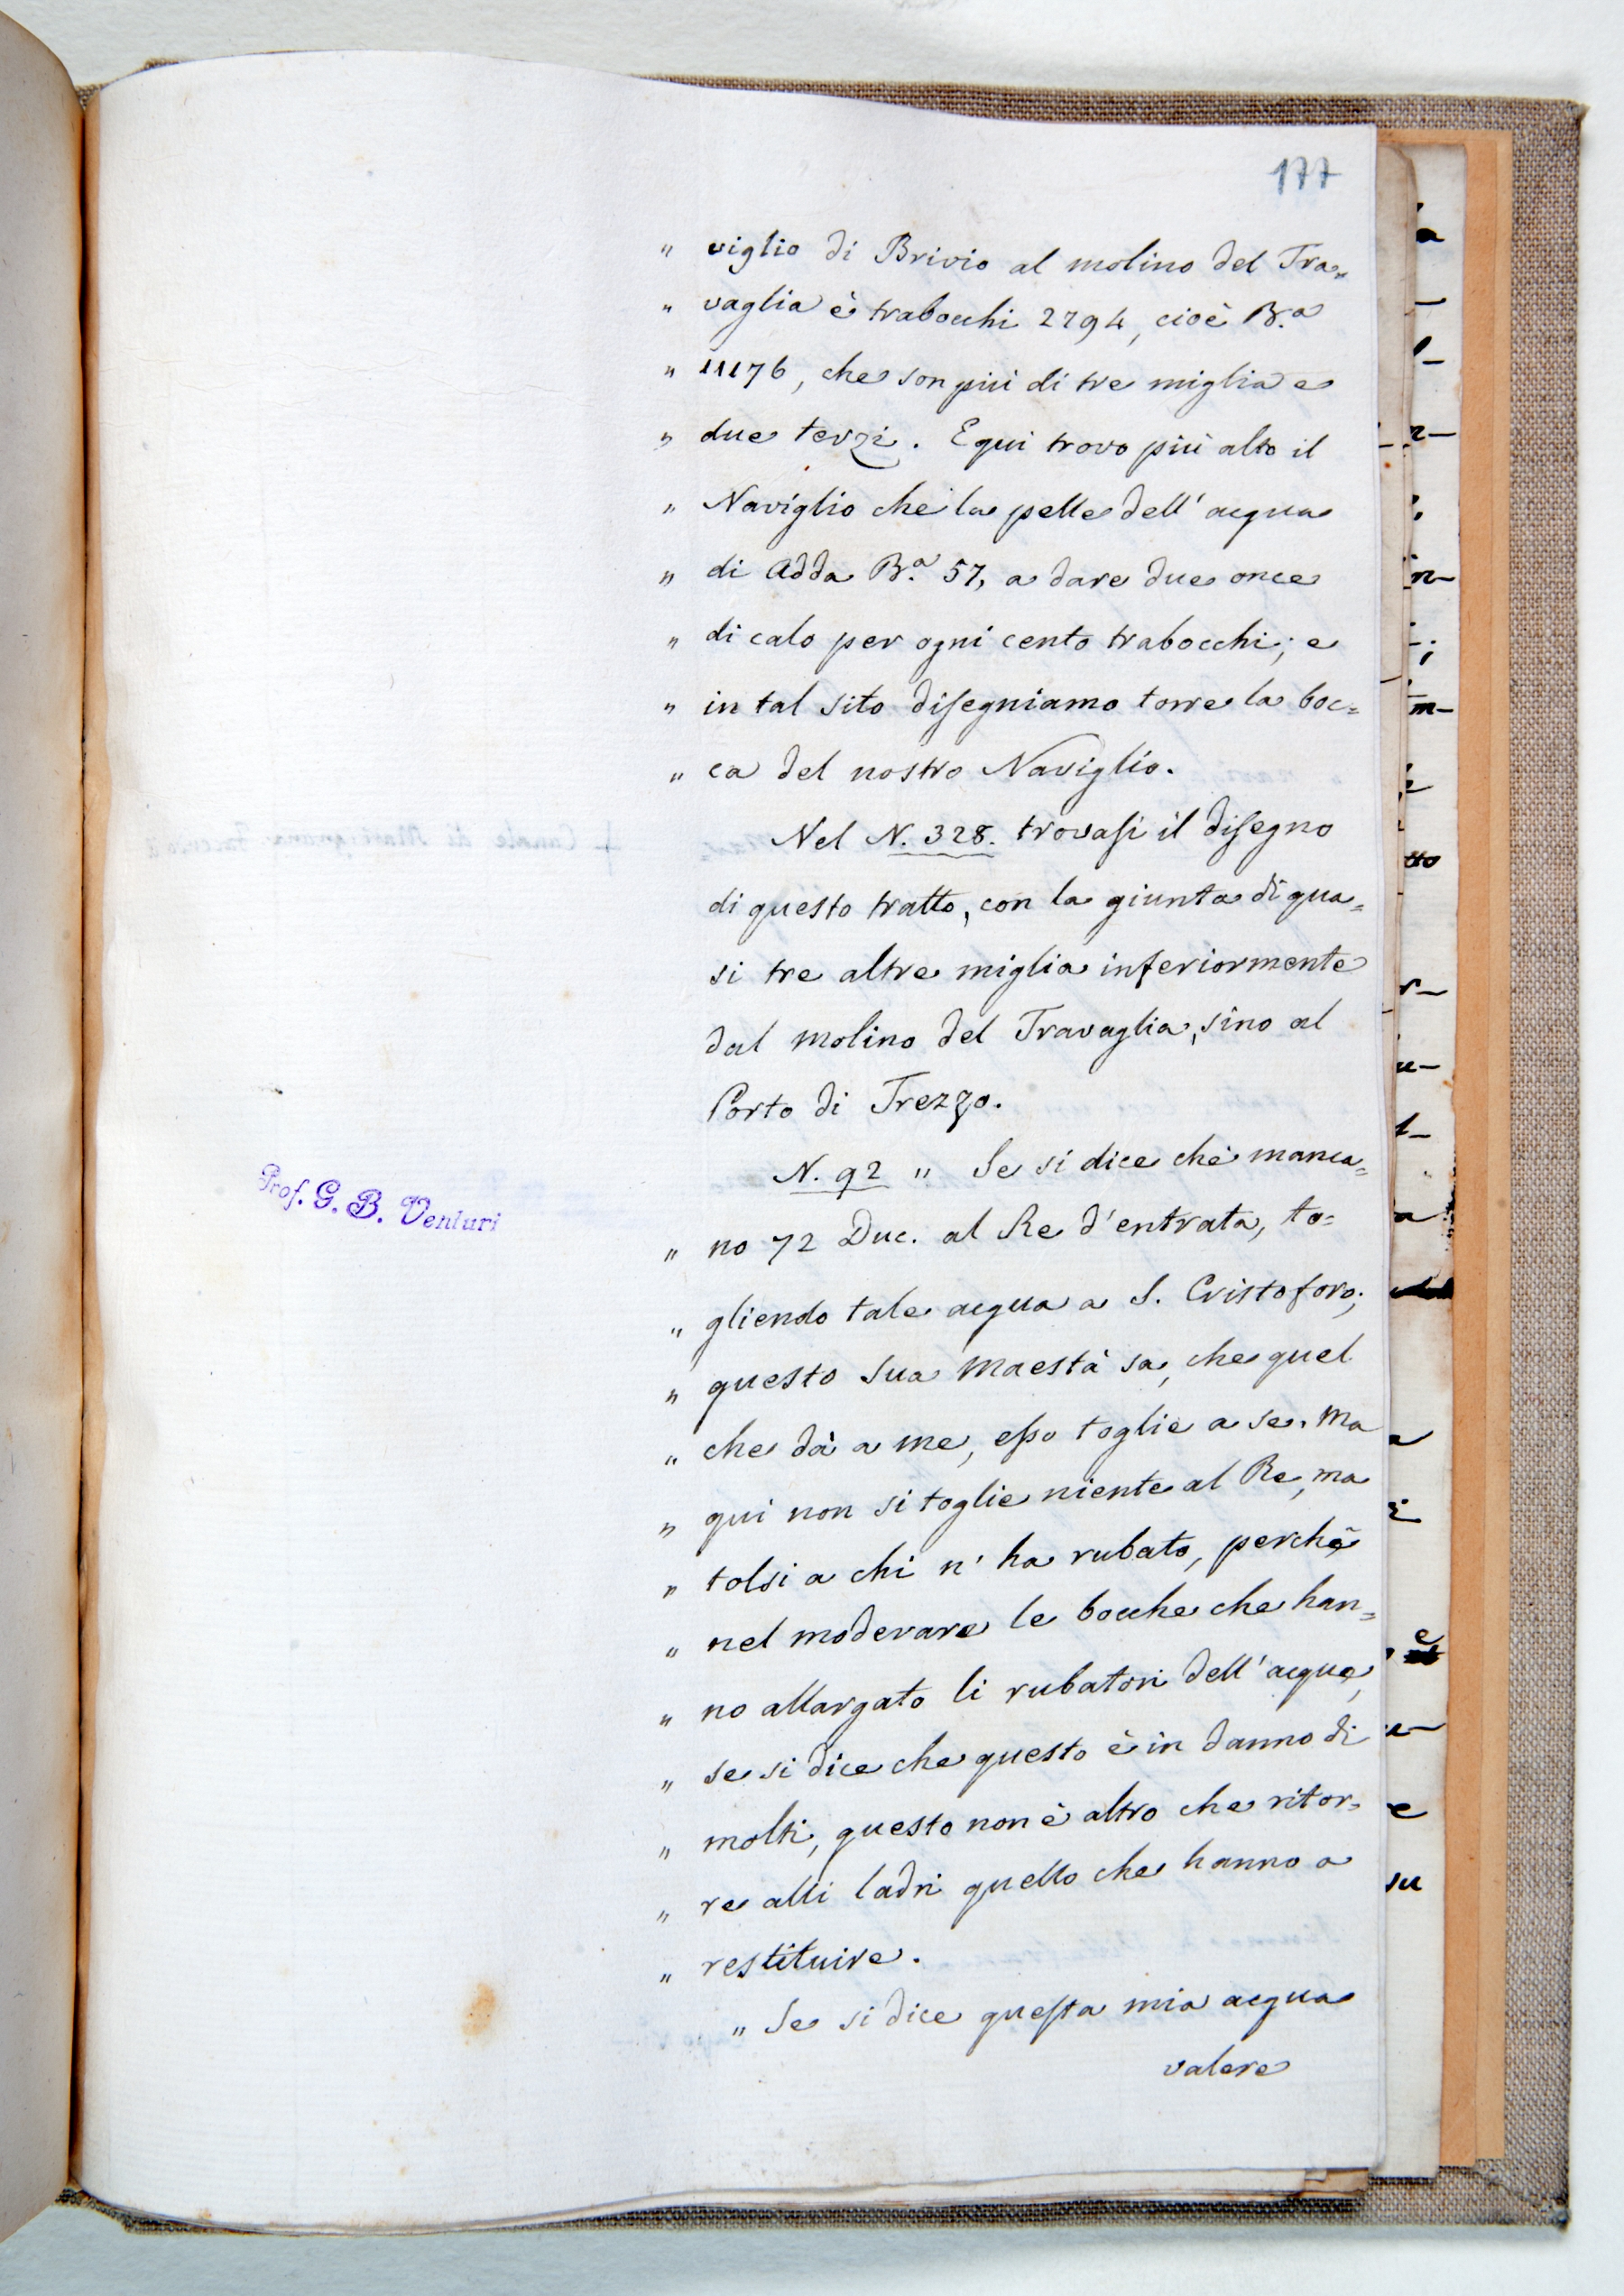 177
" viglio di Brivio al molino del Tra=
" vaglia è trabocchi 2794, cioè B.ª
" 11176, che son più di tre miglia e
" due terzi. E qui trovo più alto il
" Naviglio che la pelle dell' acqua
" di Adda B.ª 57, a dare due once
" di calo per ogni cento trabocchi; e
" in tal sito diſegniamo torre la boc=
" ca del nostro Naviglio.
Nel N. 328. trovaſi il diſegno
di questo tratto, con la giunta di qua=
si tre altre miglia inferiormente
dal molino del Travaglia, sino al
Porto di Trezzo.
N. 92 " Se si dice che manca=
" no 72 Duc. al Re d'entrata, to=
" gliendo tale acqua a S. Cristoforo;
" questo sua Maestà sa, che quel
" che dà a me, eſso toglie a se. Ma
" qui non si toglie niente al Re, ma
" tolsi a chi n' ha rubato, perchè
" nel moderare le bocche che han=
" no allargato li rubatori dell' acqua,
" se si dice che questo è in danno di
" molti, questo non è altro che ritor=
" re alli ladri quello che hanno a
" restituire.
" Se si dice queſta mia acqua
valere
Prof. G. B. Venturi